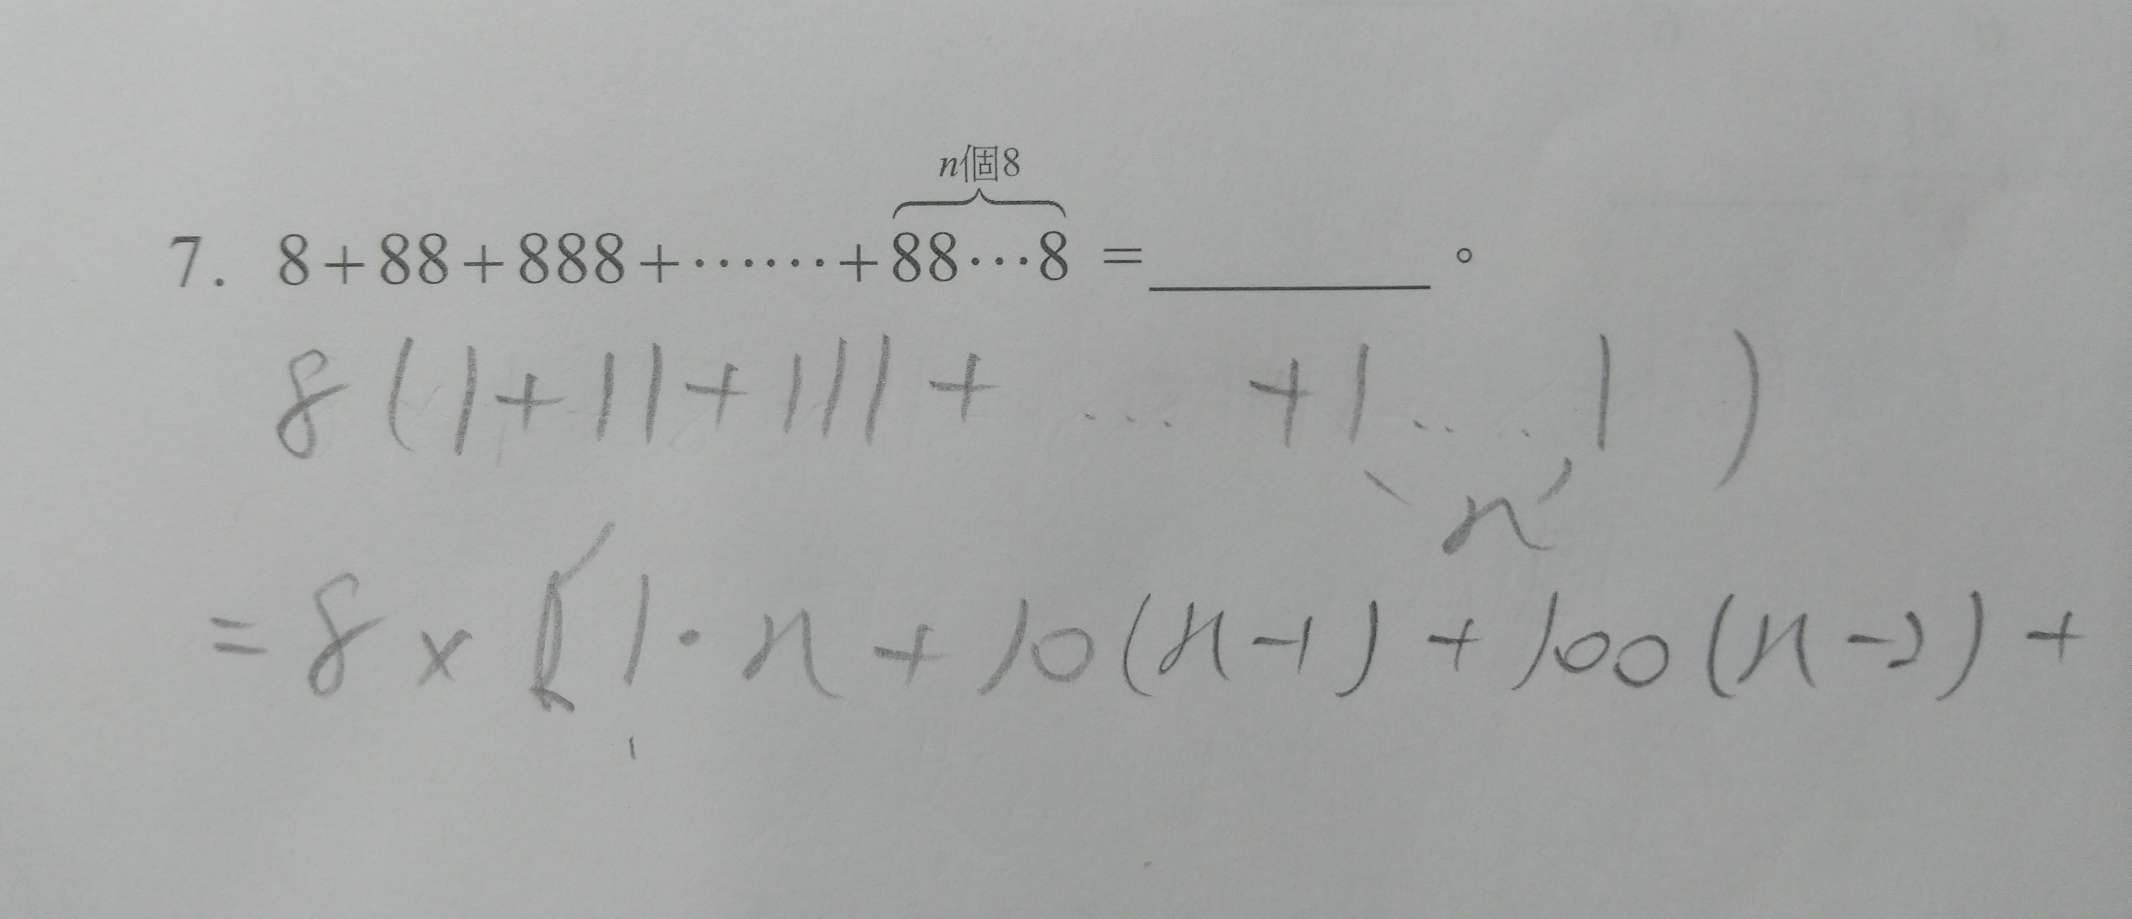 n個8
7. 8+88+888+……+88…8 =______。
8(1+11+111+ ... +1.....1)
n
=8×[1·n+10(n-1)+100(n-2)+